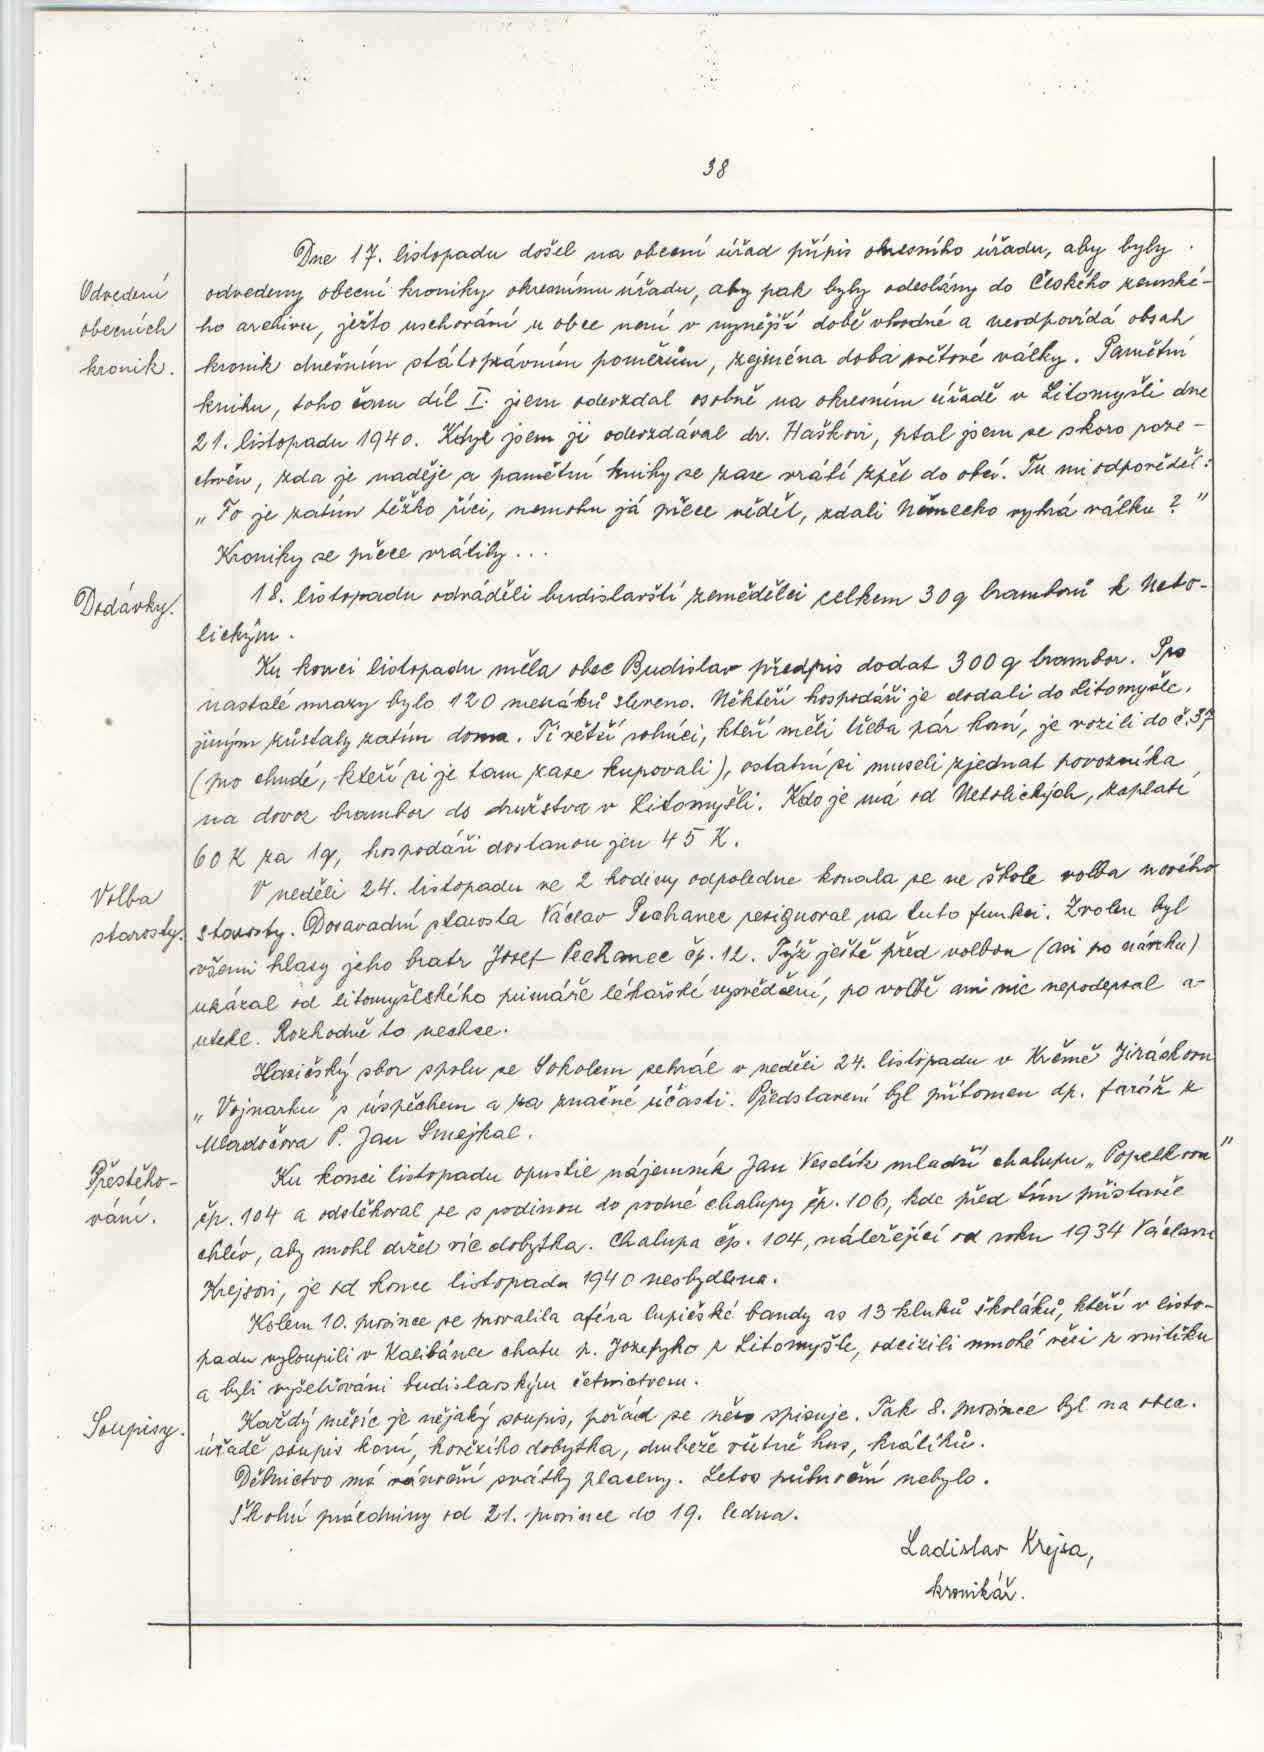 38
Dne 17. listopadu došel na obecní úřad přípis okresního úřadu, aby byly
Odvedení
odvedeny obecní kroniky okresnímu úřadu, aby pak byly odeslány do Českého zemské-
obecních
ho archivu, ježto uschování u obce není v nynější době vhodné a neodpovídá obsah
kronik.
kronik dnešním státoprávním poměrům, zejména doba světové války. Pamětní
knihu, toho času díl I. jsem odevzdal osobně na okresním úřadě v Litomyšli dne
21. listopadu 1940. Když jsem ji odevzdával dr. Haškovi, ptal jsem se skoro poze-
chvěn, zda je naděje a pamětní knihy se zase vrátí zpět do obcí. Tu mi odpověděl:
„To je zatím těžko říci, nemohu já přece vědět, zdali Německo vyhrá válku?"
Kroniky se přece vrátily...
Dodávky.
18. listopadu odváděli budislavští zemědělci celkem 30 q bramborů k Neto-
lickým.
Ku konci listopadu měla obec Budislav předpis dodat 300 q brambor. Pro
nastalé mrazy bylo 120 metráků sleveno. Někteří hospodáři je dodali do Litomyšle,
jiným zůstaly zatím doma. Ti větší rolníci, kteří měli třeba pár koní, je vozili do č. 37
(pro chudé, kteří si je tam zase kupovali), ostatní si museli zjednat povozníka
na dovoz brambor do družstva v Litomyšli. Kdo je má od Netolických, zaplatí
60 K za 1 q, hospodáři dostanou jen 45 K.
Volba
V neděli 24. listopadu ve 2 hodiny odpoledne konala se ve škole volba nového
starosty.
starosty. Dosavadní starosta Václav Pechanec resignoval na tuto funkci. Zvolen byl
všemi hlasy jeho bratr Josef Pechanec čp. 12. Týž ještě před volbou (asi po návrhu)
ukázal od litomyšlského primáře lékařské vysvědčení, po volbě ani nic nepodepsal a
utekl. Rozhodně to nechce.
Hasičský sbor spolu se Sokolem sehrál v neděli 24. listopadu v Krčmě Jiráskovu
„Vojnarku" s úspěchem a za značné účasti. Představení byl přítomen dp. farář z
Mladočova P. Jan Smejkal.
Přestěho-
Ku konci listopadu opustil nájemník Jan Veselík mladší chalupu „Popelkovu"
vání.
čp. 104 a odstěhoval se s rodinou do rodné chalupy čp. 106, kde před tím přistavěl
chlév, aby mohl držet víc dobytka. Chalupa čp. 104, náležející od roku 1934 Václavu
Krejsovi, je od konce listopadu 1940 neobydlena.
Kolem 10. prosince se provalila aféra lupičské bandy as 13 kluků školáků, kteří v listo-
padu vyloupili v Kalibánce chatu p. Jozefyho z Litomyšle, odcizili mnohé věci z vnitřku
a byli vyšetřováni budislavským četnictvem.
Soupisy.
Každý měsíc je nějaký soupis, pořád se něco spisuje. Tak 8. prosince byl na obec.
úřadě soupis koní, hovězího dobytka, drubeže včetně hus, králíků.
Dělnictvo má vánoční svátky placeny. Letos půlnoční nebylo.
Školní prázdniny od 21. prosince do 19. ledna.
Ladislav Krejsa,
kronikář.